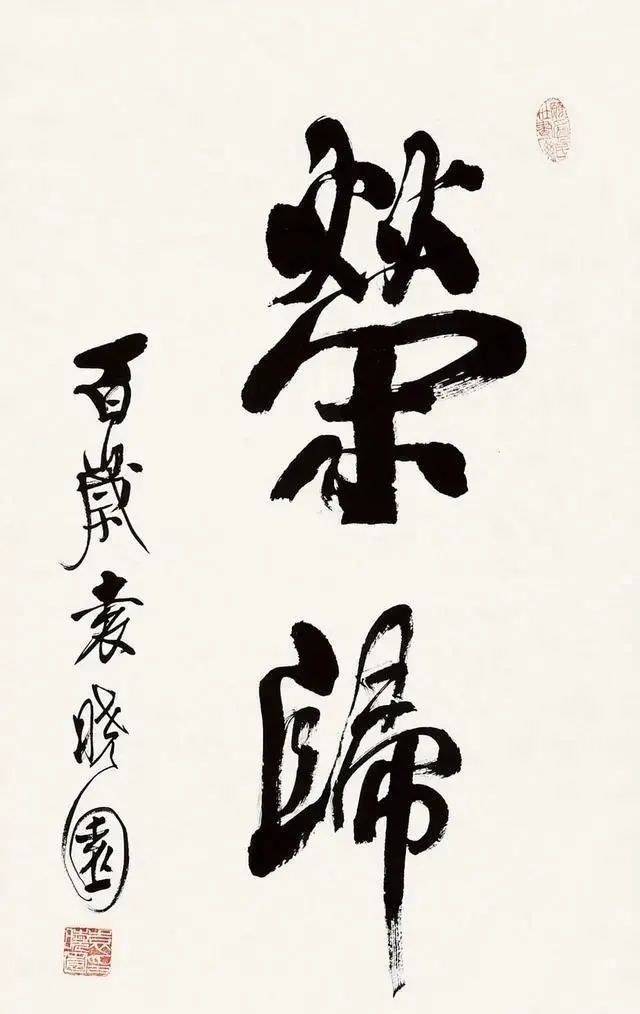 榮歸
百歲袁晓園